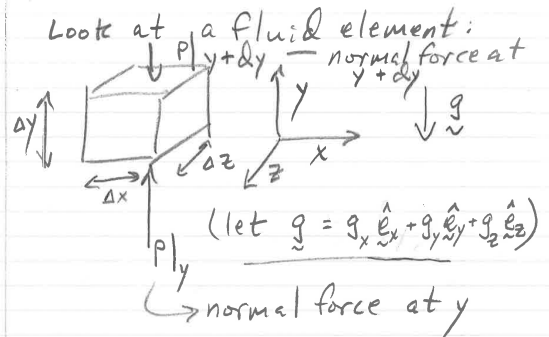 Look at a fluid element:
P|y+dy — normal force at
y + dy
Δy
y
g
Δz
x
z
Δx
(let g = gₓ êₓ + g_y ê_y + g_z ê_z)
P|y
normal force at y